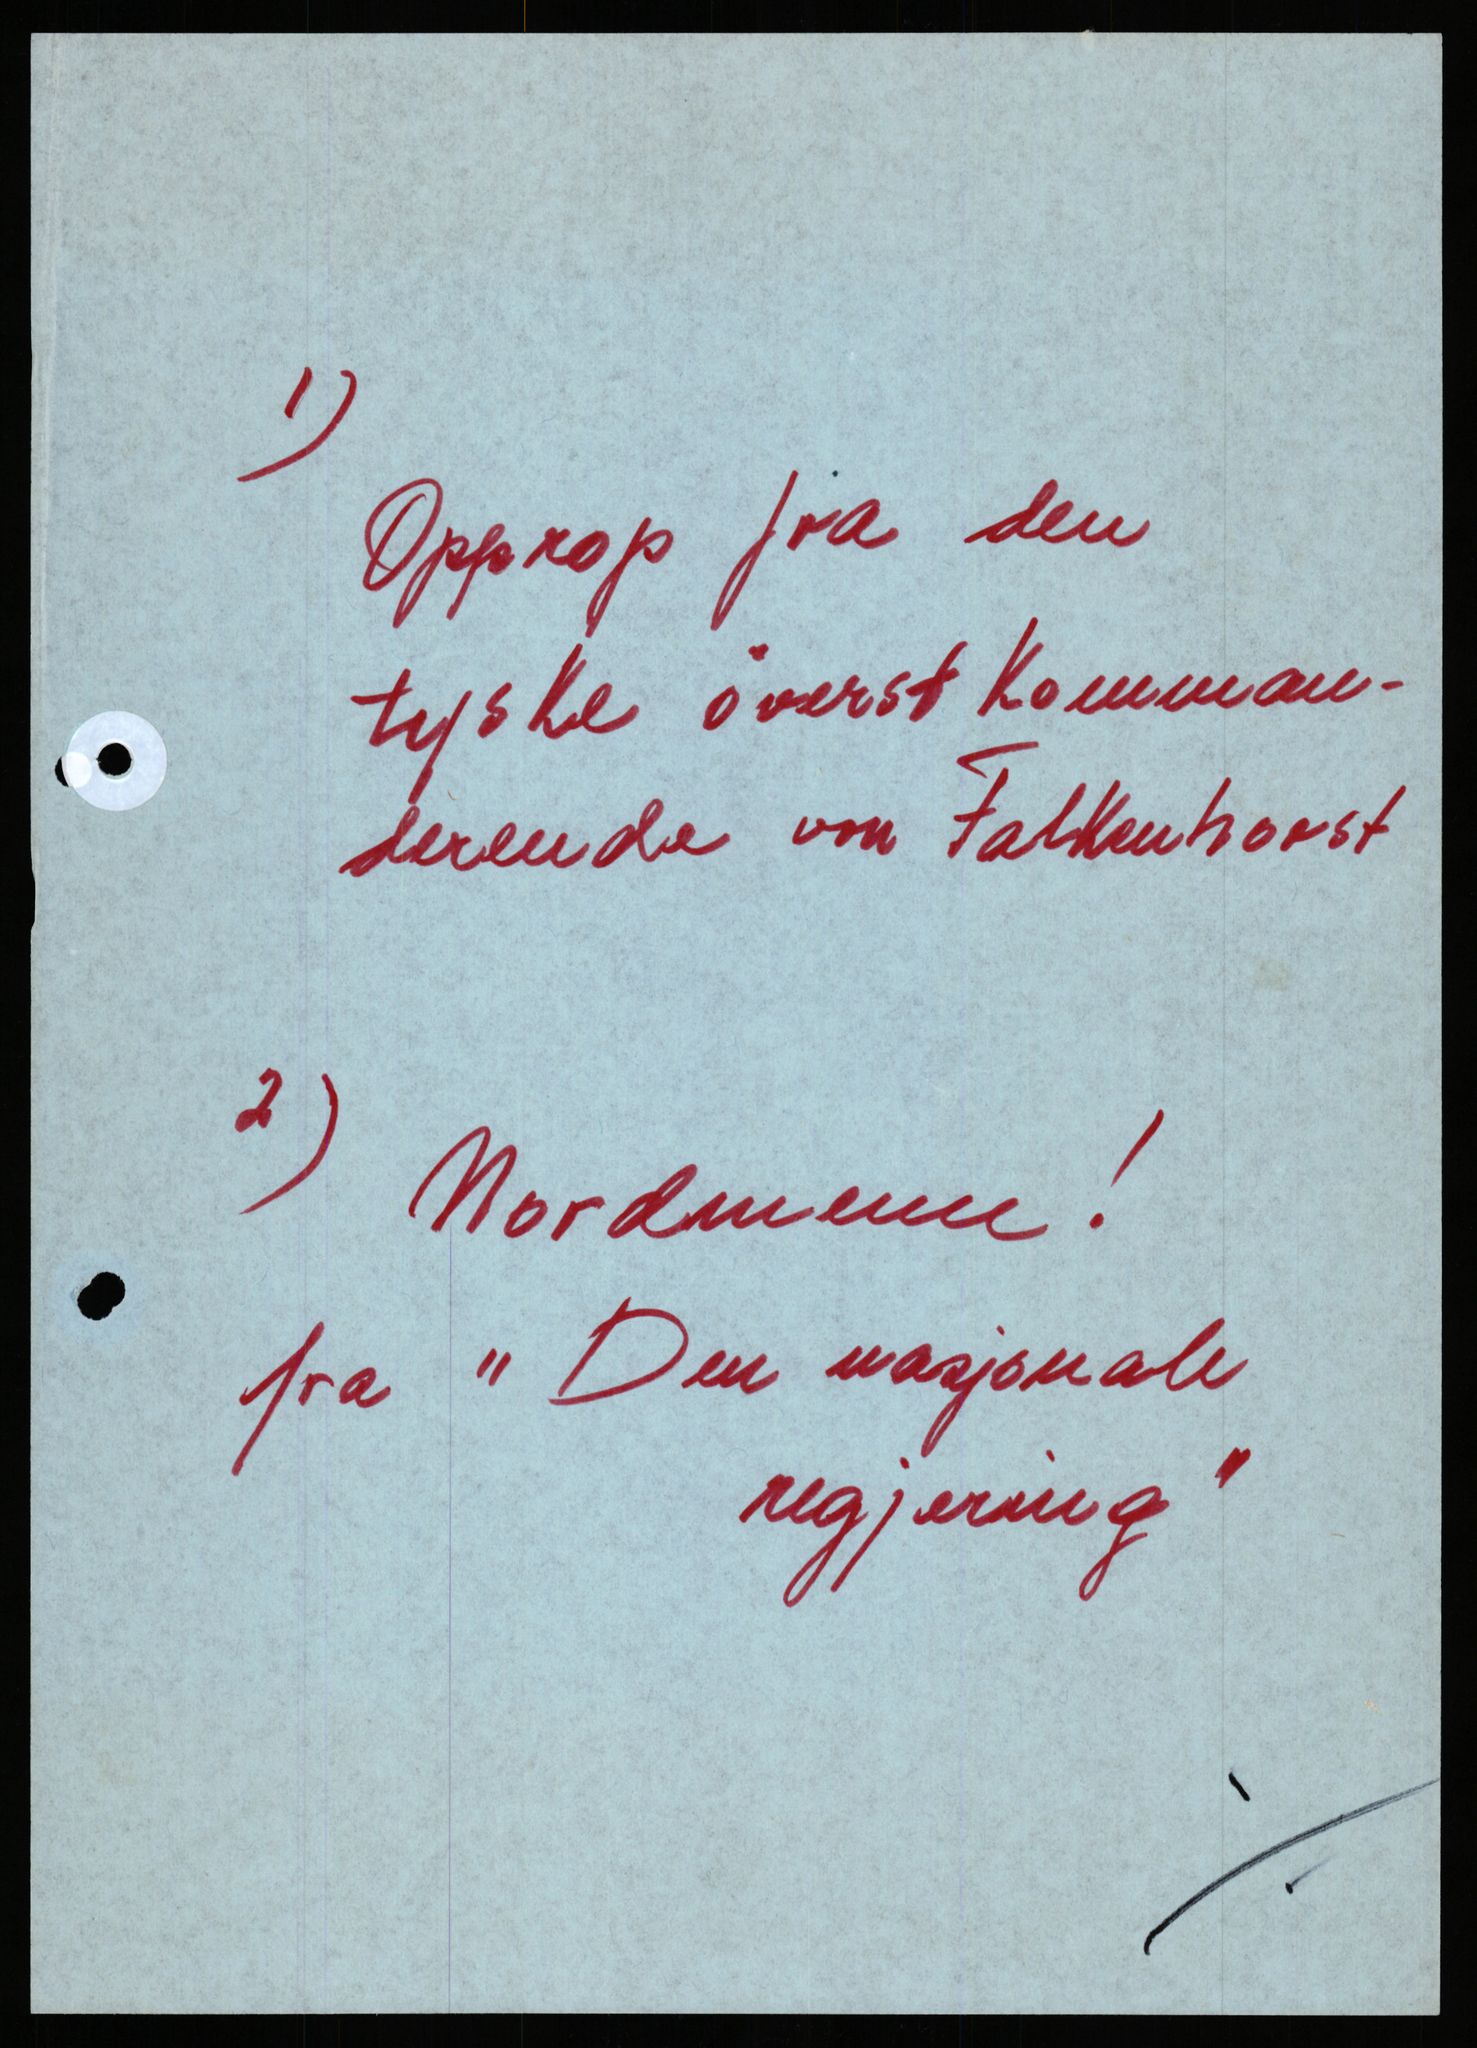 1)
Opprop fra den
tyske överst komman-
derende von Falkenhorst
2)
Nordmenn!
fra "Den nasjonale
regjering"